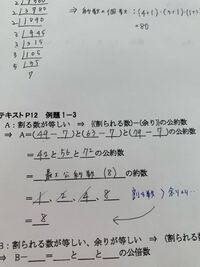 2) 3780
2) 1890
3) 945
3) 315
3) 105
5) 35
7
⇒ 約数の個数:(4+1)・(3+1)・(1+1)
=80
テキストP12 例題1-3
A:割る数が等しい ⇒ {(割られる数)-(余り)}の公約数
⇒ A=(49-7)と(63-7)と(79-7)の公約数
=42と56と72の公約数
=最大公約数(8)の約数
=1、2、4、8 割る数>余り
=8
B:割られる数が等しい、余りが等しい ⇒ (割られる数
⇒ B-__=__と__と__の公倍数